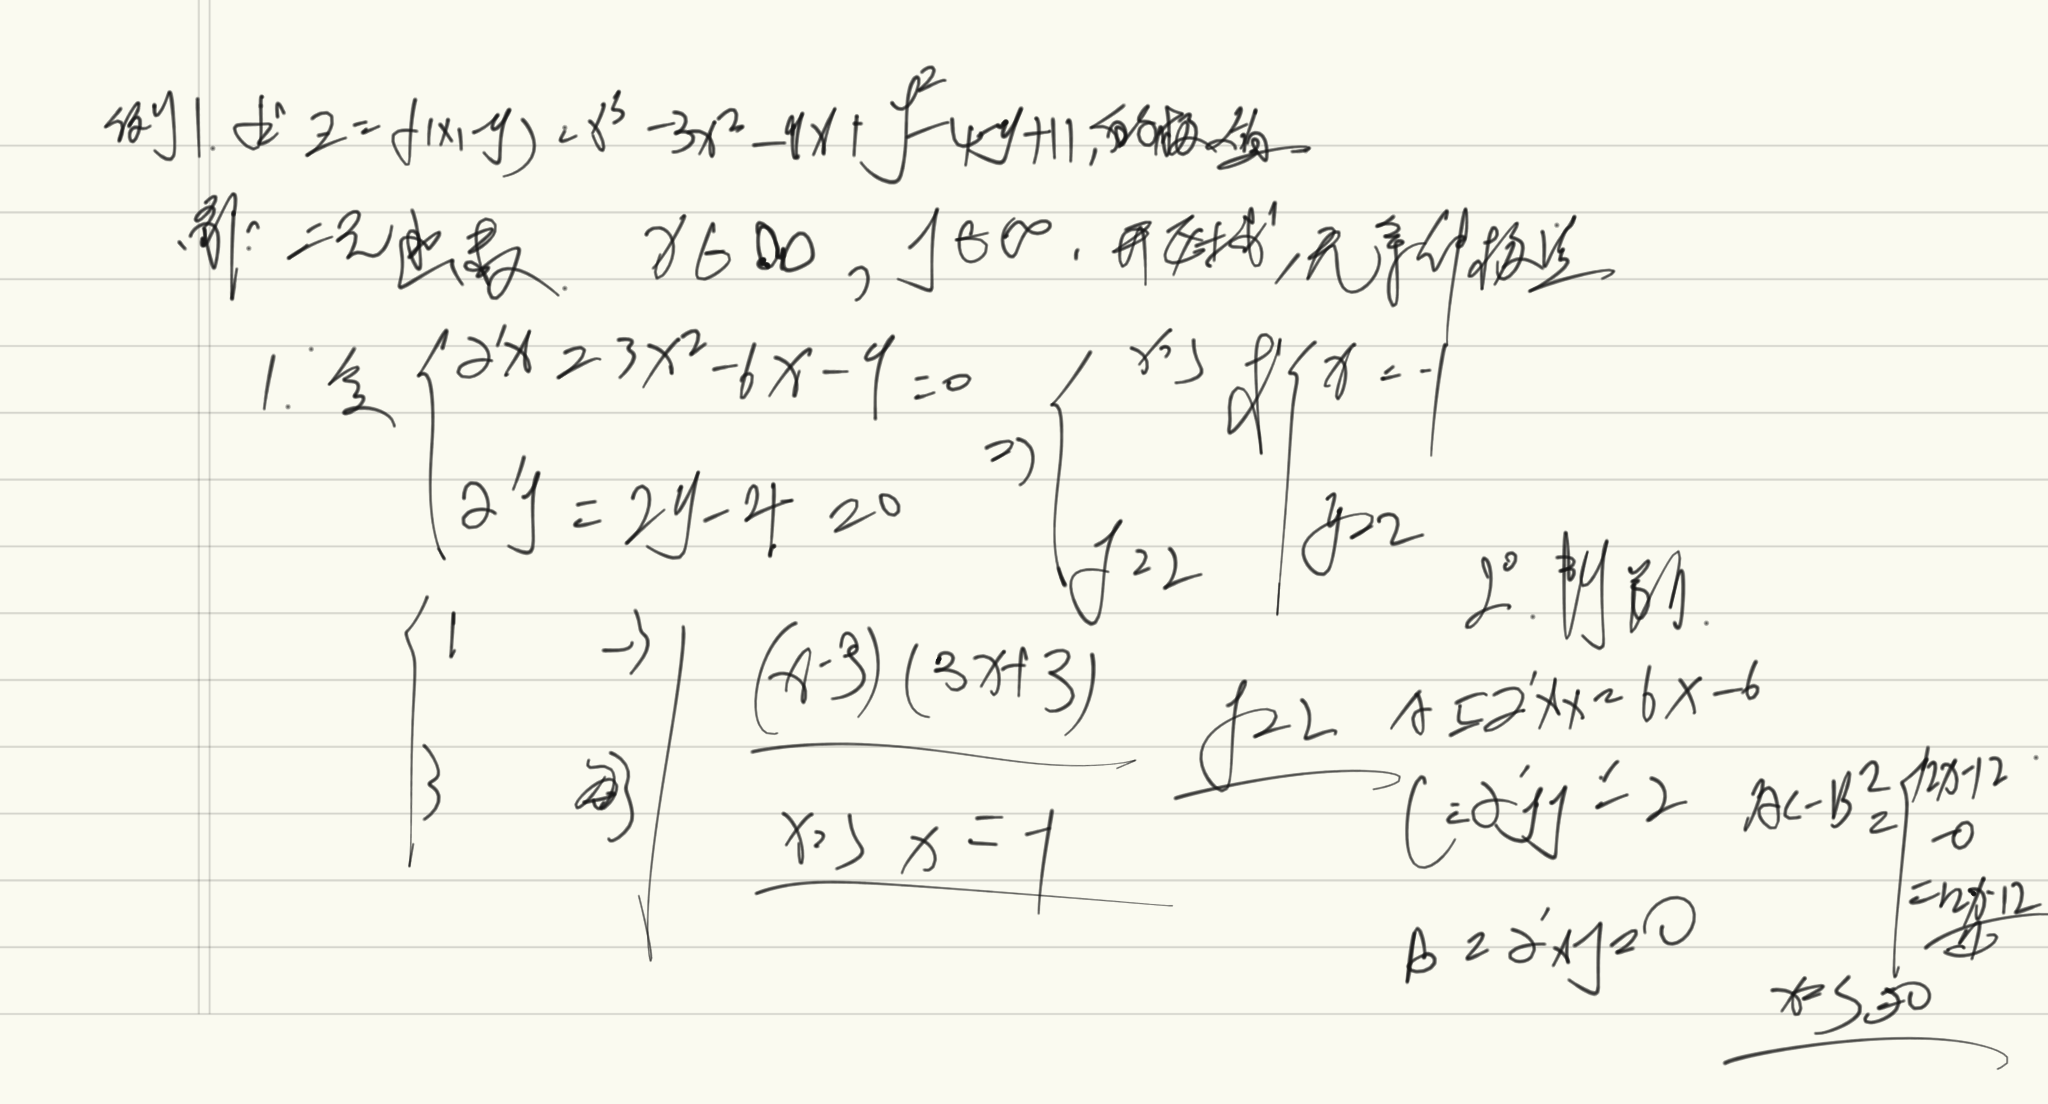 例1. 求 z = f(x, y) = x³ - 3x² - 9x + y² - 4y + 11, 的极值
解: 二元函数. x∈∞, y∈∞. 开区域, 无条件极值
1. 令 { z'x = 3x² - 6x - 9 = 0
z'y = 2y - 4 = 0
=> { x=3 或 { x = -1
y=2 y=2
2°. 判别.
{ 1 -3
3 3
(x-3)(3x+3)
x=3 x=-1
y=2
A = z'xx = 6x-6
C = z'yy = 2
B = z'xy = 0
AC-B² = 12x-12
-0
=12x-12
x=3, >0